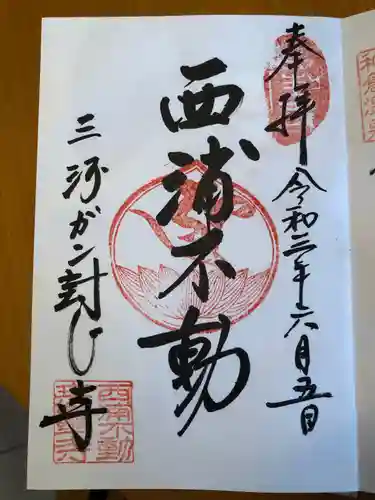 奉拝
令和三年六月五日
西浦不動
三河ガン封じ寺
西浦不動